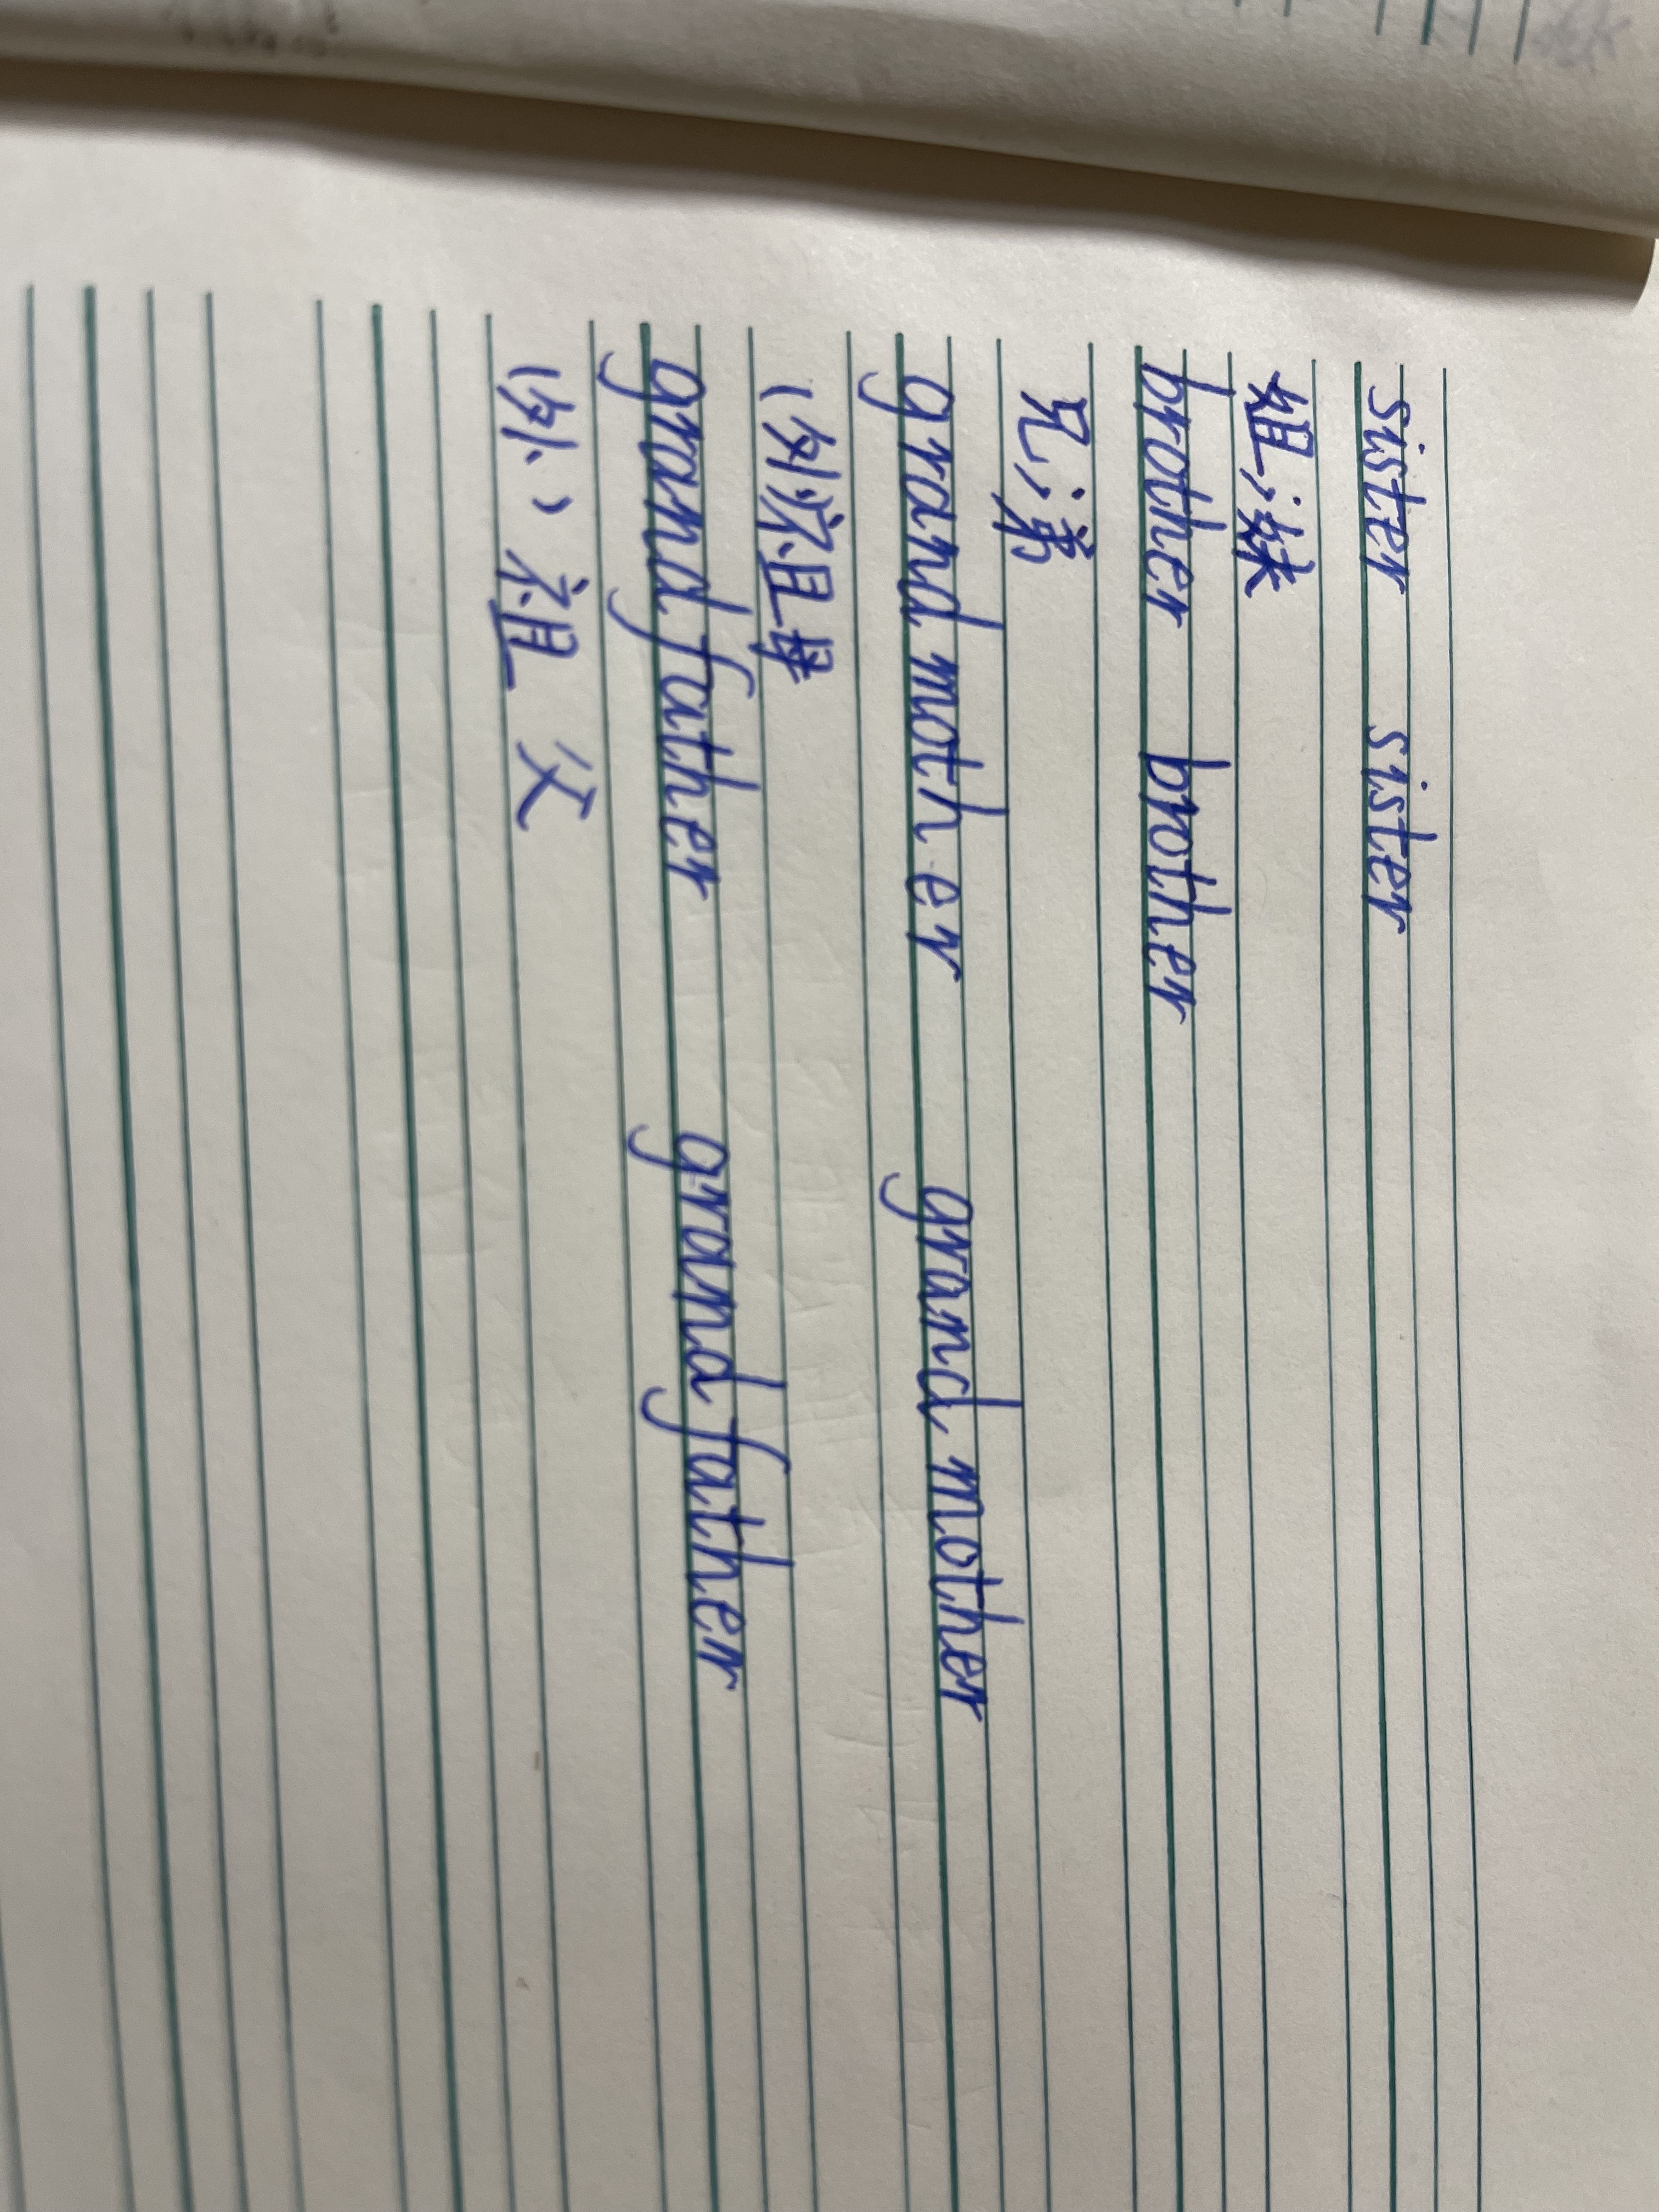 sister sister
姐;妹
brother brother
兄;弟
grand mother grand mother
(外)祖母
grand father grand father
(外)祖父